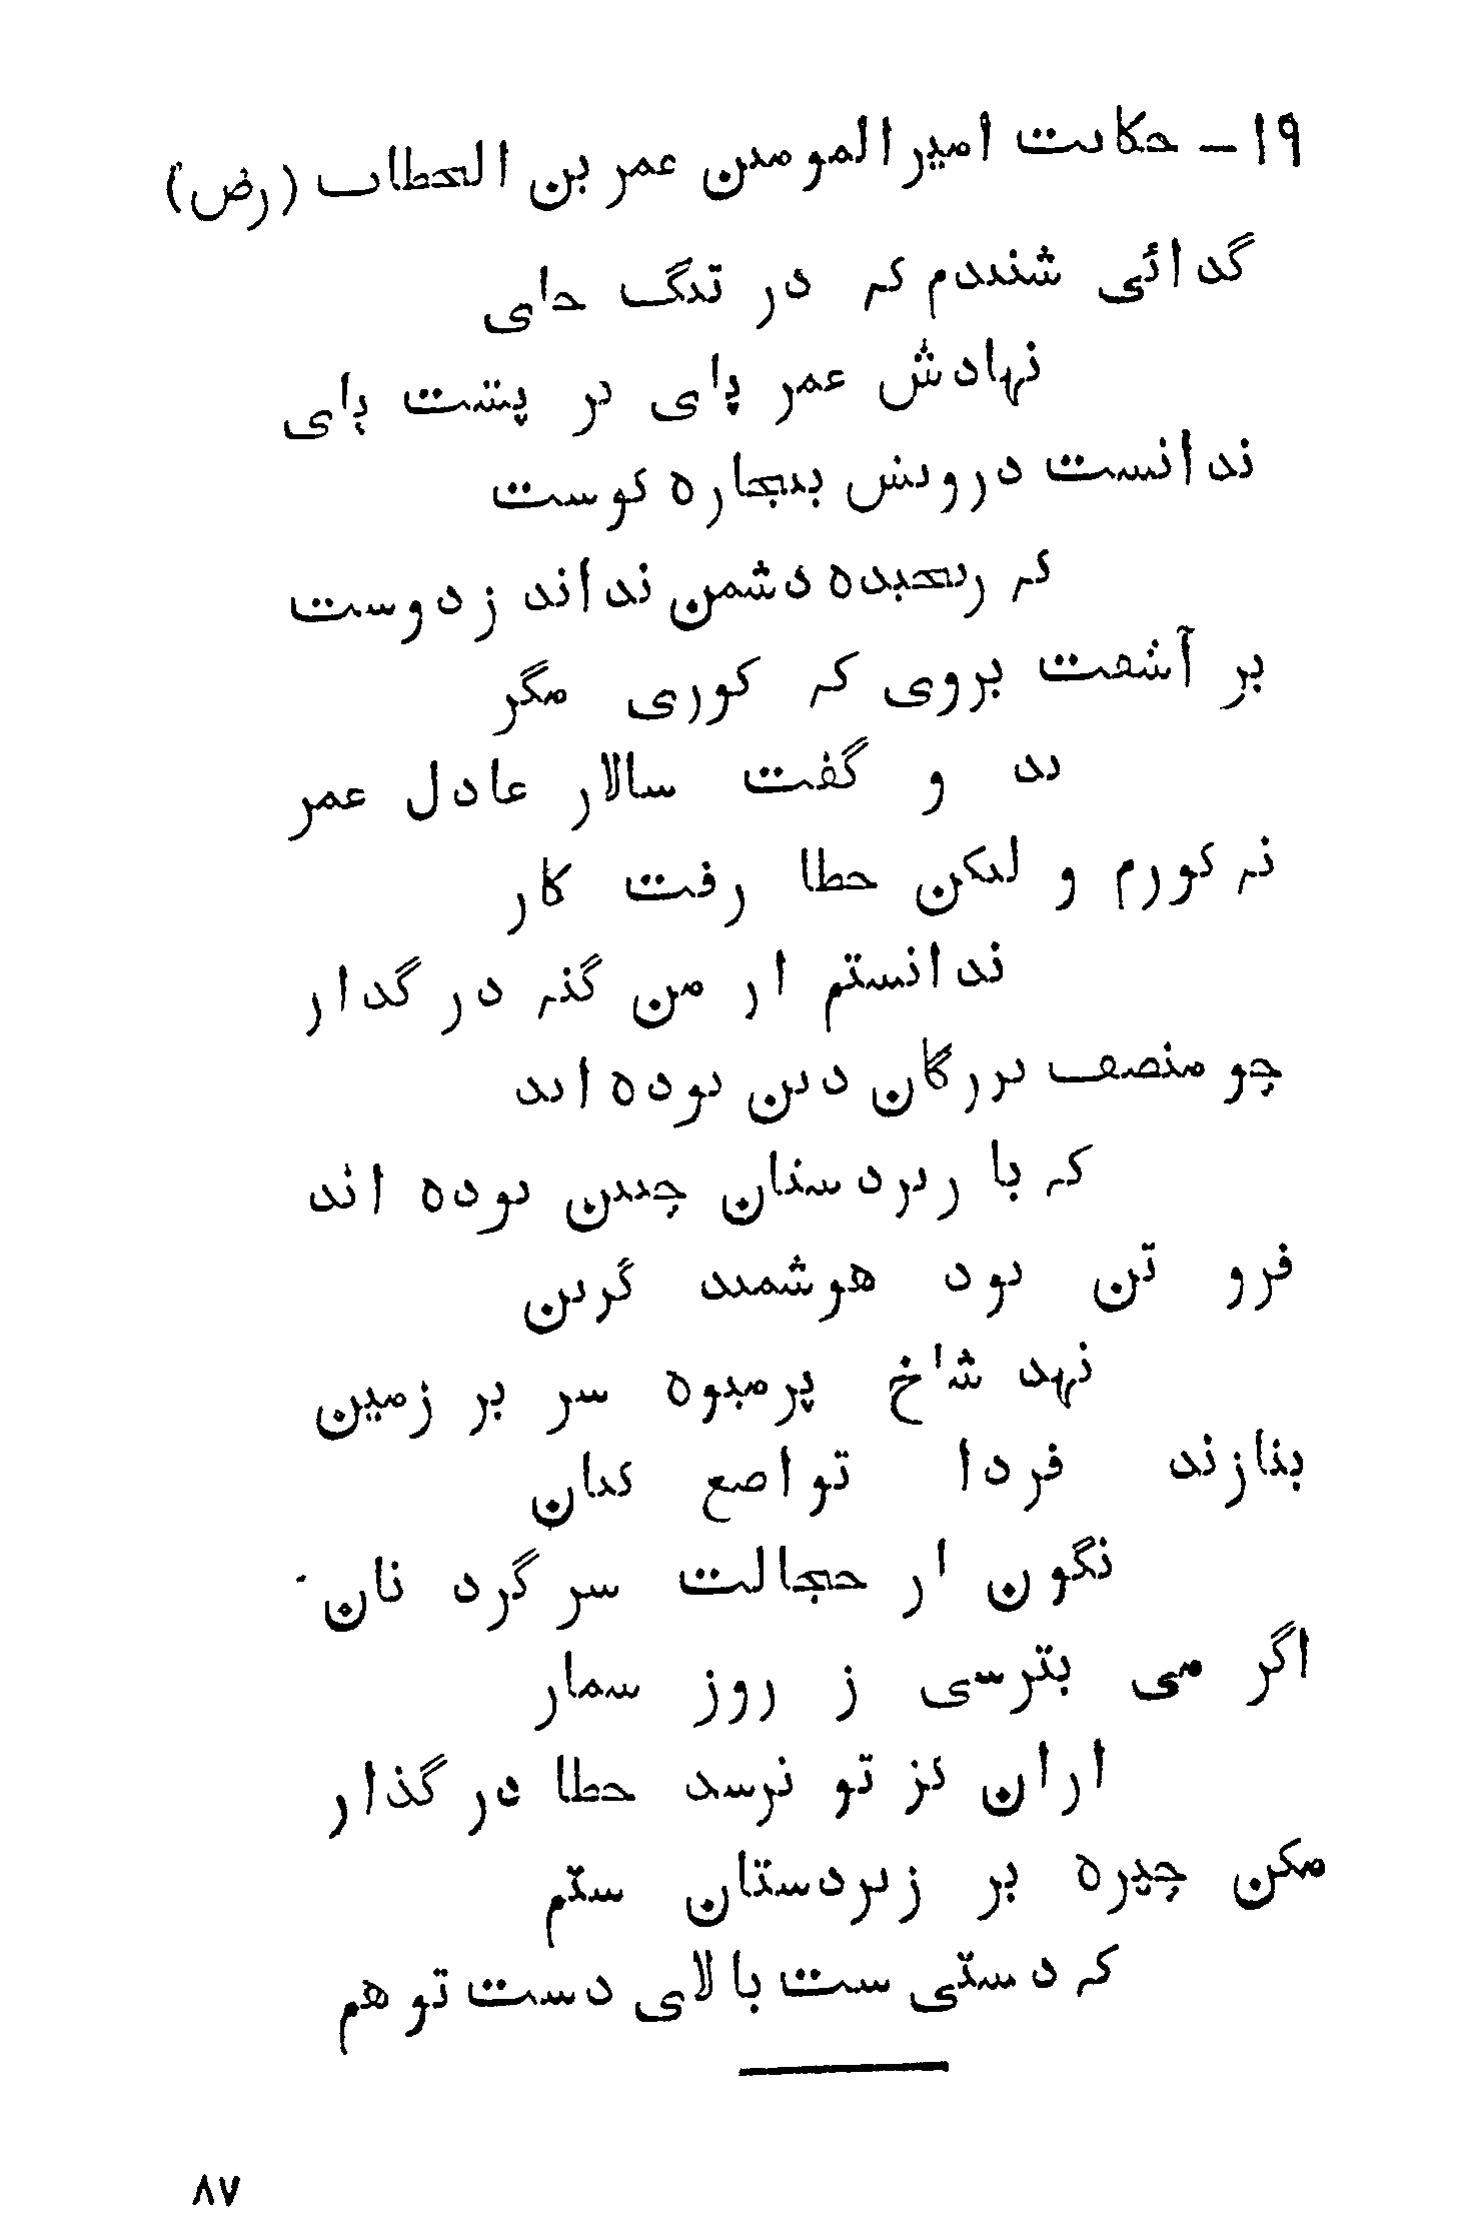 ۱۹ - حکایت امیر المومنین عمر بن الخطاب (رض)
گدائی شنیدم که در تنگ جای
نهادش عمر پای بر پشت پای
ندانست درویش بیچاره کوست
که رنجیده دشمن نداند ز دوست
بر آشفت بروی که کوری مگر
بدو گفت سالار عادل عمر
نه کورم و لیکن خطا رفت کار
ندانستم از من گنه در گذار
چو منصف بزرگان دین بوده اند
که با زیردستان چنین بوده اند
فرو تن بود هوشمند گزین
نهد شاخ پرمیوه سر بر زمین
بنازند فردا تواضع کنان
نگون از خجالت سر گرد نان
اگر می بترسی ز روز شمار
ازان کز تو ترسد خطا در گذار
مکن چیره بر زیردستان ستم
که دستی ست بالای دست تو هم
۸۷